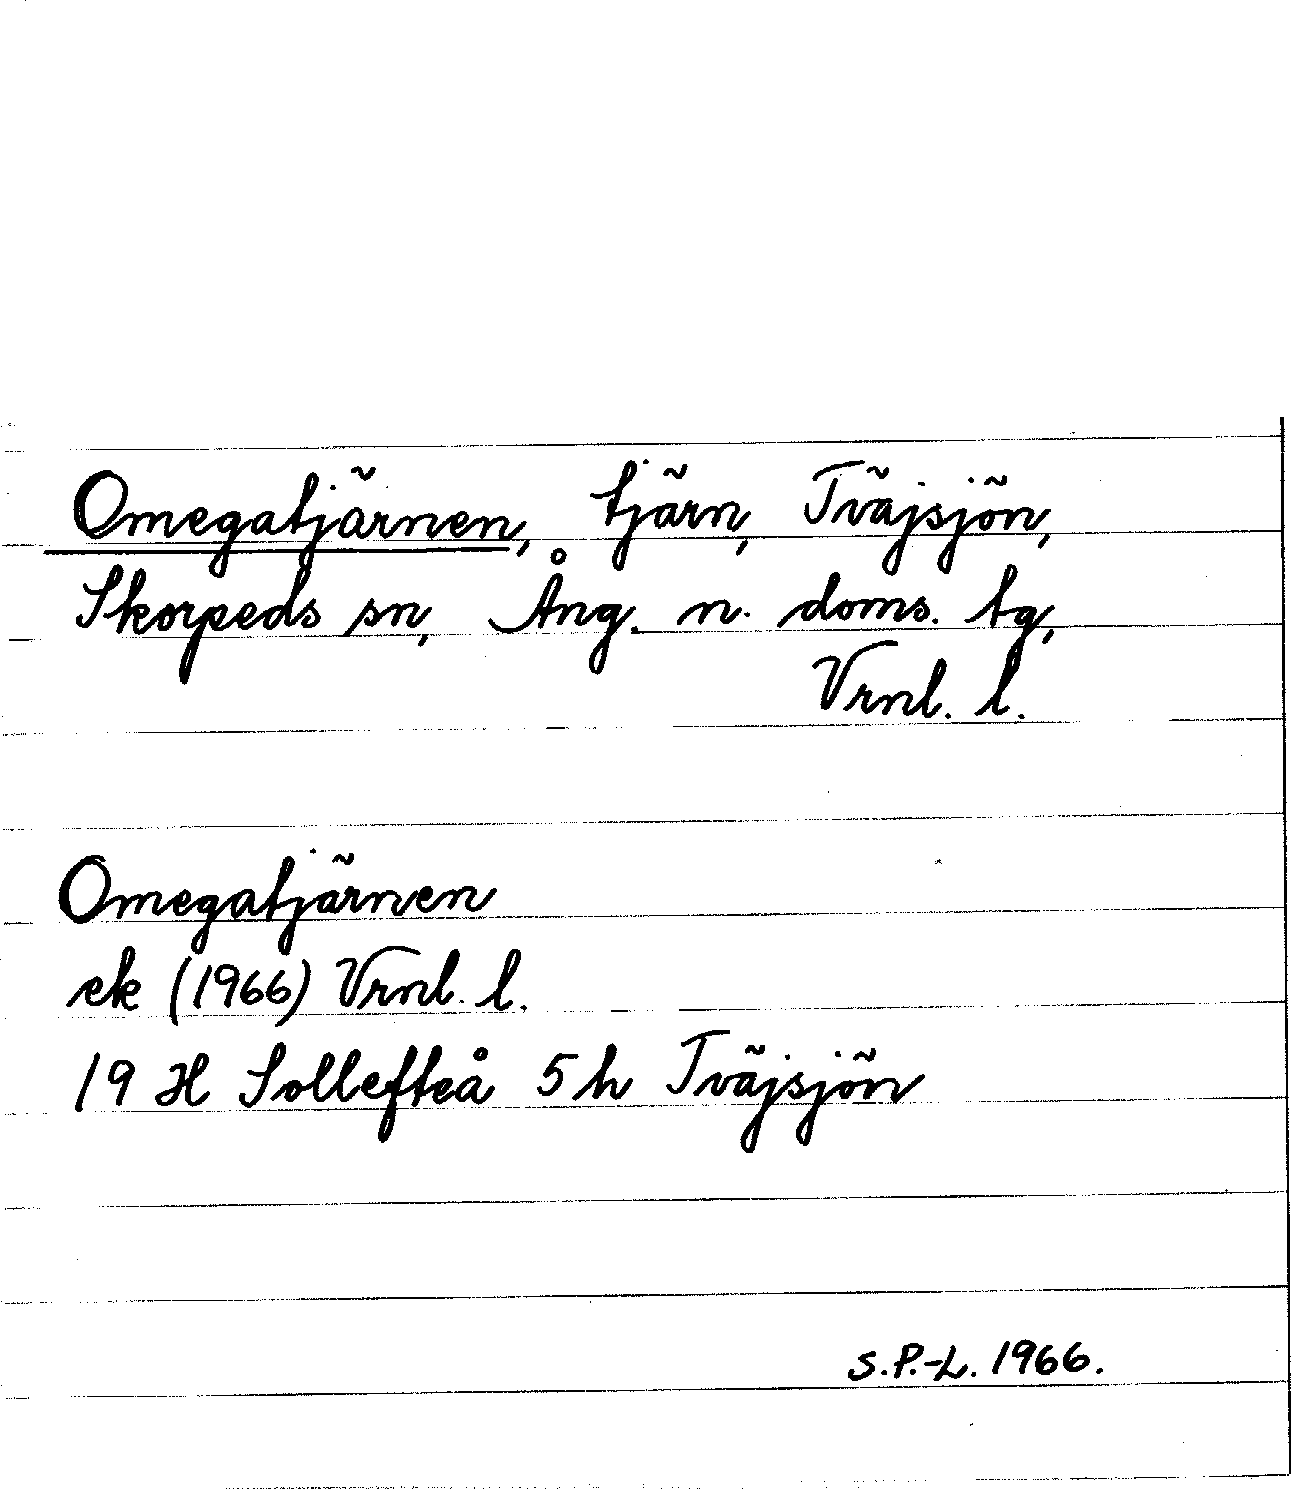 Omegatjärnen, tjärn, Tväjsjön,
Skorpeds sn, Ång. n. doms. tg,
Vrnl. l.
Omegatjärnen
ek (1966) Vrnl. l.
19 H Sollefteå 5h Tväjsjön
S.P.-L. 1966.